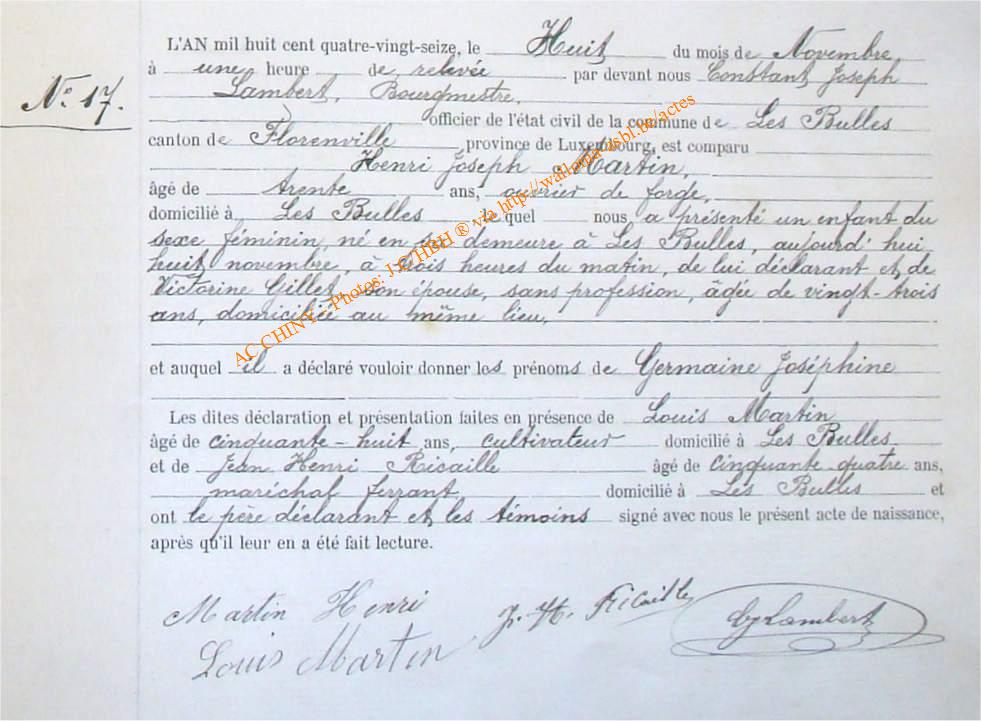 L'AN mil huit cent quatre-vingt-seize, le Huit du mois de Novembre
à une heure de relevée par devant nous Constant Joseph
N° 17.
Lambert, Bourgmestre,
officier de l'état civil de la commune de Les Bulles
canton de Florenville, province de Luxembourg, est comparu
Henri Joseph Martin,
âgé de trente ans, ouvrier de forge,
domicilié à Les Bulles lequel nous a présenté un enfant du
sexe féminin, né en sa demeure à Les Bulles, aujourd'hui
huit novembre, à trois heures du matin, de lui déclarant et de
Victorine Gillet son épouse, sans profession, âgée de vingt-trois
ans, domiciliée au même lieu.
et auquel il a déclaré vouloir donner les prénoms de Germaine Joséphine
Les dites déclaration et présentation faites en présence de Louis Martin
âgé de cinquante-huit ans, cultivateur domicilié à Les Bulles
et de Jean Henri Ricaille âgé de cinquante quatre ans,
maréchal ferrant domicilié à Les Bulles et
ont le père déclarant et les témoins signé avec nous le présent acte de naissance,
après qu'il leur en a été fait lecture.
Martin Henri
J. H. Ricaille
CJLambert
Louis Martin
AC CHINY - Photos: J-C HBH ® via http://wallonia-asbl.be/actes